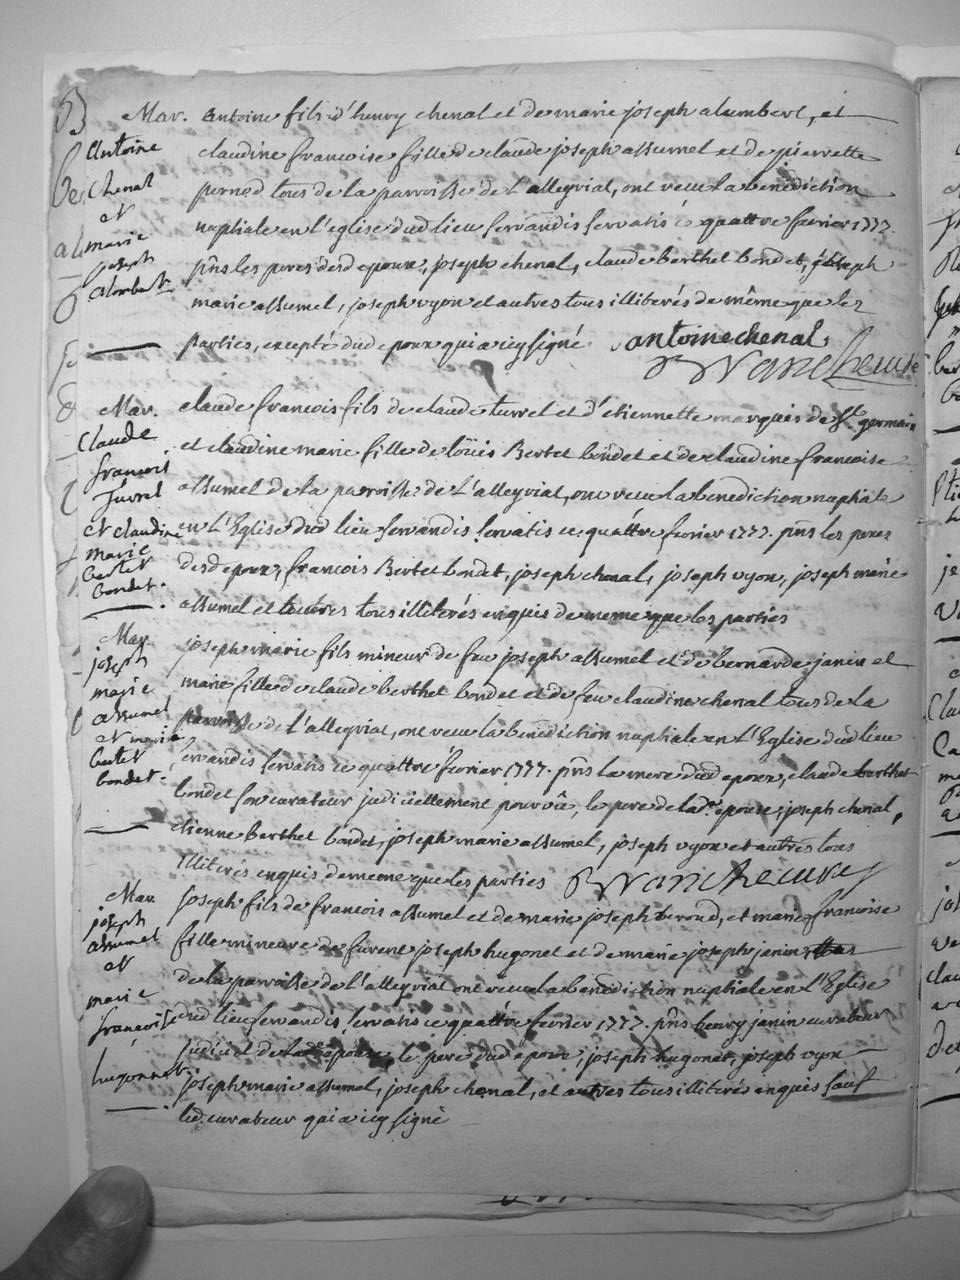 Mar. antoine fils d'henry chenal et de marie joseph alumbert, et
antoine
claudine francoise fille de claude joseph assumel et de pierrette
chenal
pernod tous de la parroisse de L'alleyriat, ont recu la benediction
et
nuptiale en l'eglise dud lieu servandis servatis ce quattre fevrier 1777.
marie
joseph
pñs les peres desd epoux, joseph chenal, claude berthet bondet, joseph
alombert
marie assumel, joseph vyon et autres tous illiterés de même que les
parties, excepté dud epoux qui a icy signé antoine chenal
Mar. claude francois fils de claude turrel et d'etiennette marquis de St germain
Claude
et claudine marie fille de loüis Bertet bondet et de claudine francoise
francois
turrel
assumel de la parroisse de L'alleyriat, ont recu la benediction nuptiale
et claudine
en L'Eglise dud lieu servandis servatis ce quattre fevrier 1777. pñs les peres
marie
bertet
desd epoux, francois Bertet bondet, joseph chenal, joseph vyon, joseph marie
bondet.
assumel et autres tous illiterés enquis de meme que les parties
Mar.
joseph marie fils mineur de feu joseph assumel et de bernarde janin et
joseph
marie
marie fille de claude berthet bondet et de feu claudine chenal tous de la
assumel
parroisse de L'alleyriat, ont recu la benediction nuptiale en L'Eglise dud lieu
et marie
bertet
servandis servatis ce quattre fevrier 1777. pñs la mere dud epoux, claude berthet
bondet.
bondet son curateur judiciellement pourvû, le pere de lad. epouse, joseph chenal,
etienne berthet bondet, joseph marie assumel, joseph vyon et autres tous
illiterés enquis de meme que les parties
Mar. joseph fils de francois assumel et de marie joseph beroud, et marie francoise
joseph
assumel
fille mineure de laurent joseph hugonet et de marie joseph janin
et
de la parroisse de L'alleyriat ont recu la benediction nuptiale en L'Eglise
marie
francoise
dud lieu servandis servatis ce quattre fevrier 1777. pñs henry janin curateur
judiciel de lad epouse, le pere dud epoux, joseph hugonet, joseph vyon
hugonnet.
joseph marie assumel, joseph chenal, et autres tous illiterés enquis sauf
led. curateur qui a icy signé